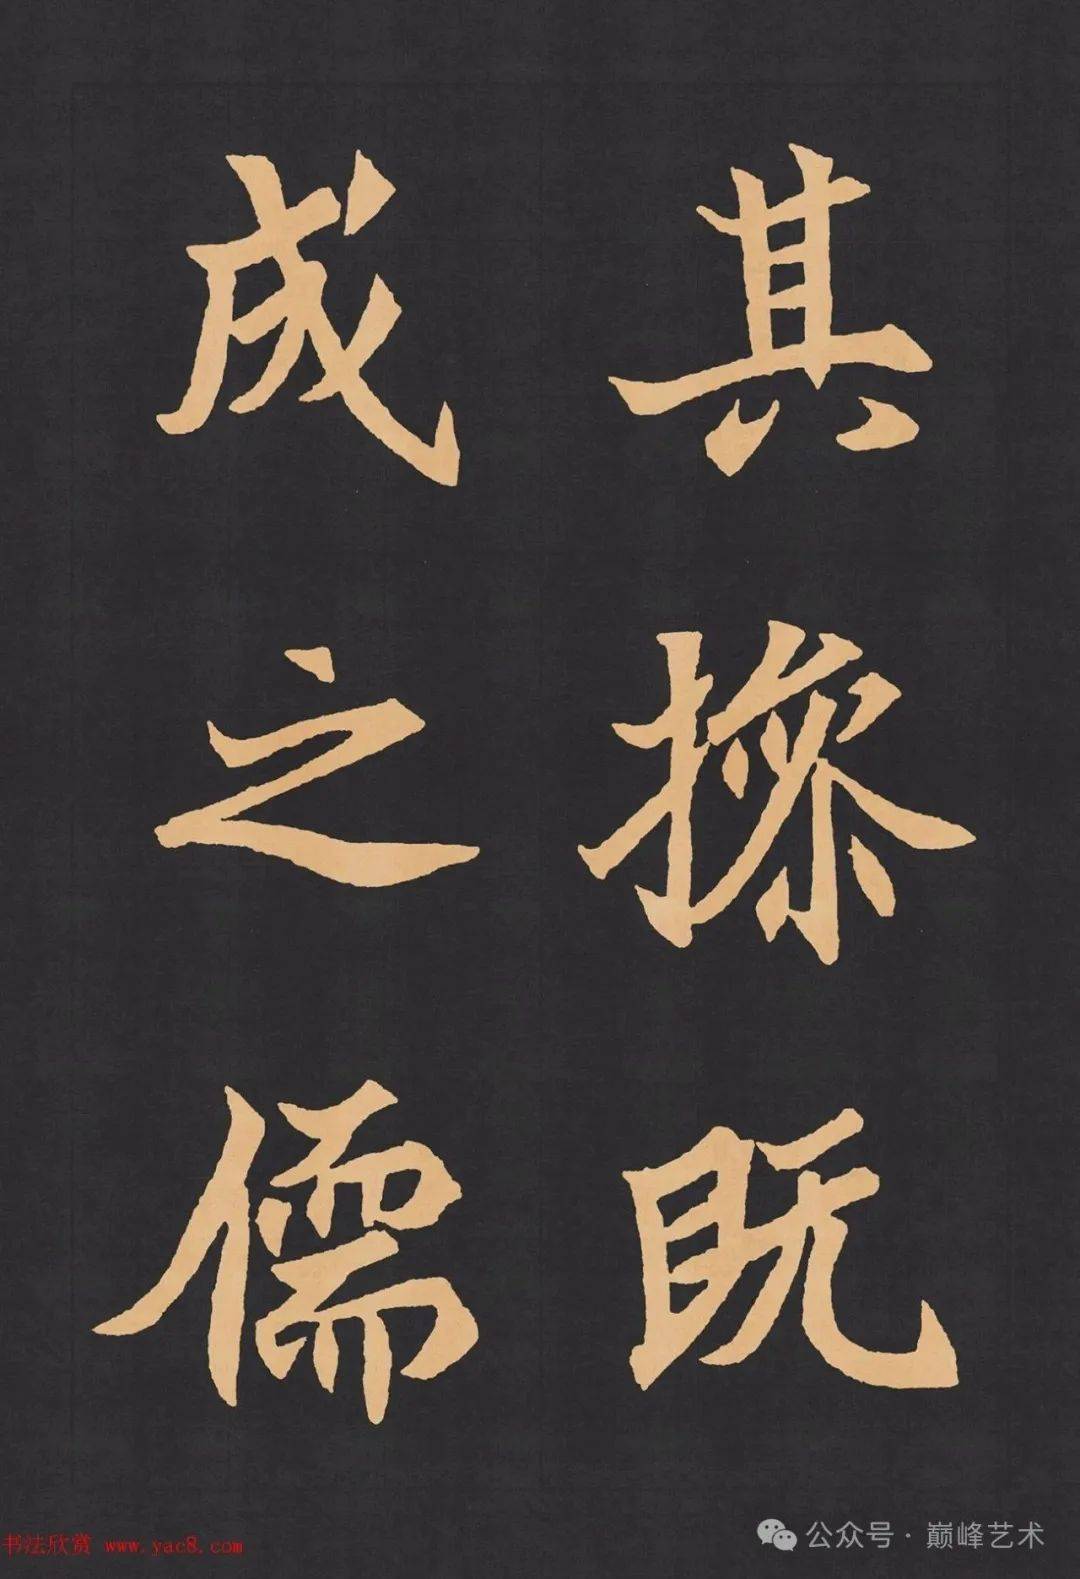 其操既
成之儒
书法欣赏 www.yac8.com
公众号·巅峰艺术